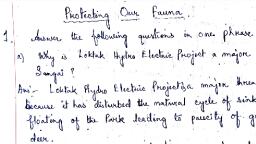 Protecting Our Fauna.
1. Answer the following questions in one phrase
a) Why is Loktak Hydro Electric Project a major
Sangai ?
Ans:- Loktak Hydro Electric Project is a major threa
because it has disturbed the natural cycle of sink
floating of the Park leading to paucity of g
deer.